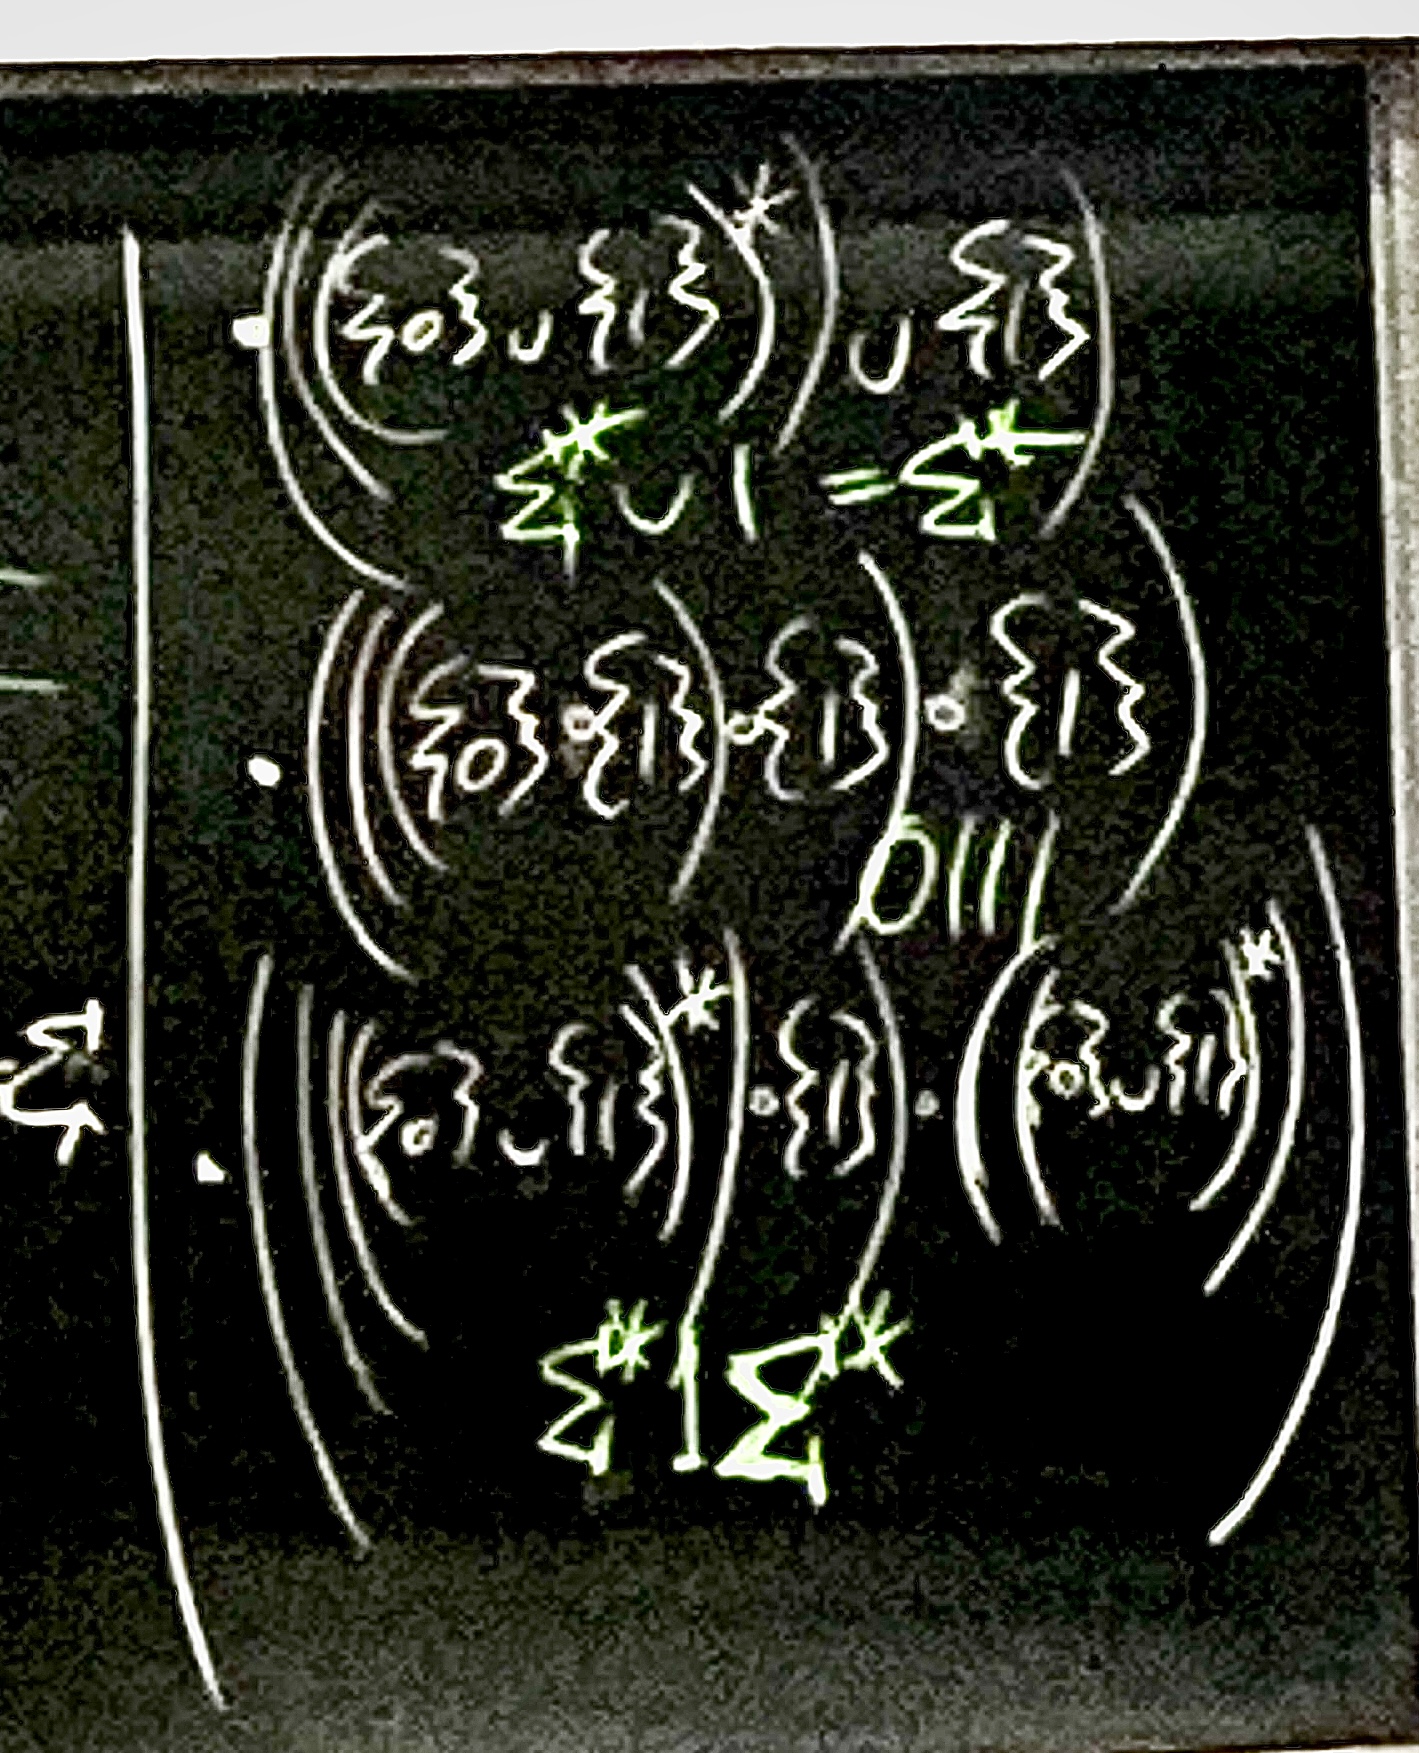 • ((({0} ∪ {1})*) ∪ {1})
Σ* ∪ 1 = Σ*
• ((({0} ∘ {1}) ∘ {1}) ∘ {1})
0111
• (((({0} ∪ {1})*) ∘ {1}) ∘ (({0} ∪ {1})*))
Σ
Σ*1Σ*